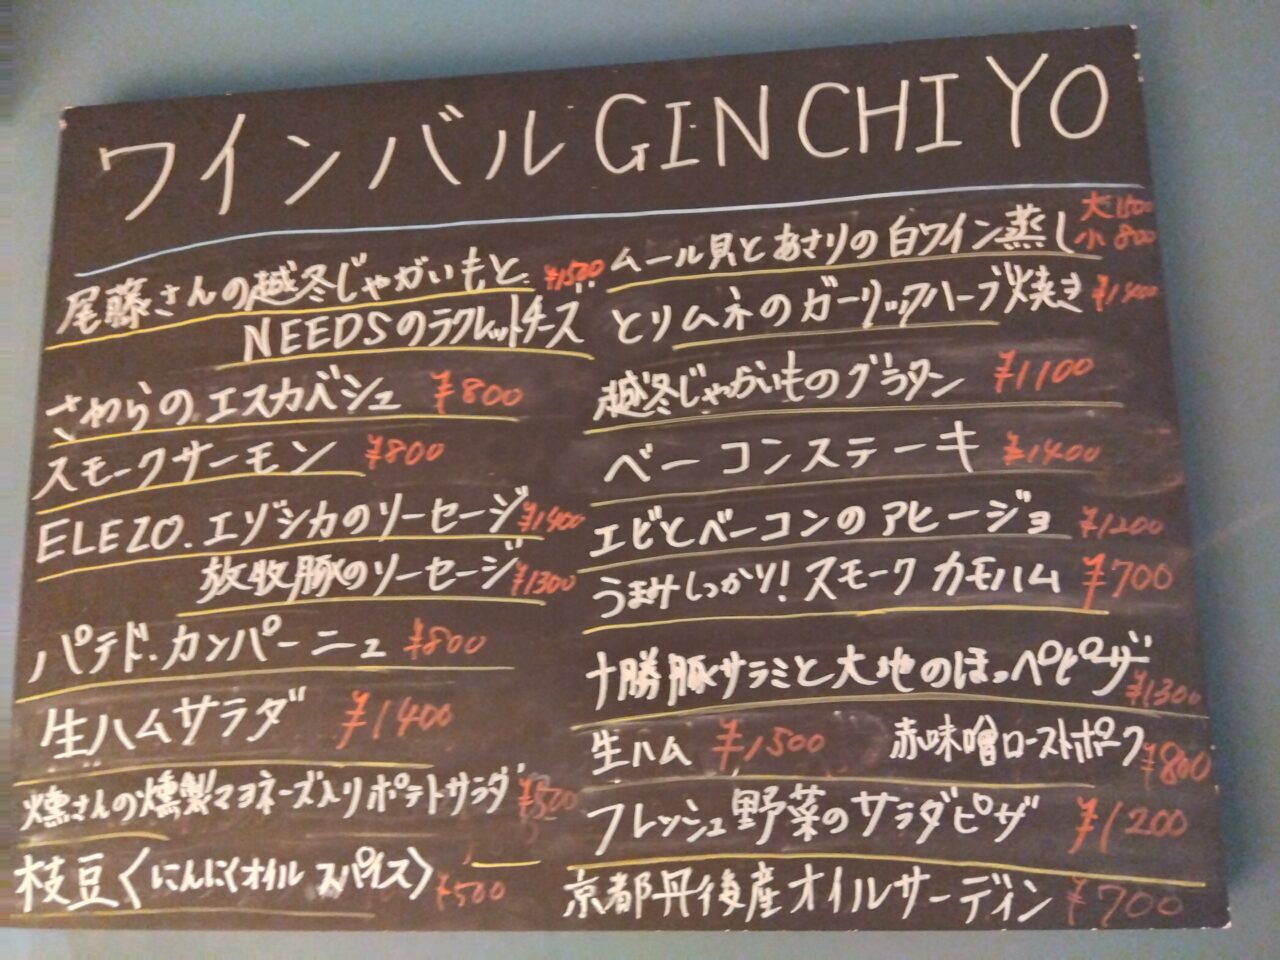 ワインバル GINCHIYO
尾藤さんの越冬じゃがいもと ¥1500
NEEDSのラクレットチーズ
さわらのエスカベシュ ¥800
スモークサーモン ¥800
ELEZO.エゾシカのソーセージ ¥1400
放牧豚のソーセージ ¥1300
パテド.カンパーニュ ¥800
生ハムサラダ ¥1400
燻さんの燻製マヨネーズ入りポテトサラダ ¥500
枝豆〈にんにくオイル スパイス〉 ¥500
ムール貝とあさりの白ワイン蒸し 大1500
小 800
とりムネのガーリックハーブ焼き ¥1400
越冬じゃがいものグラタン ¥1100
ベーコンステーキ ¥1400
エビとベーコンのアヒージョ ¥1200
うまみしっかり!スモークカモハム ¥700
十勝豚サラミと大地のほっぺピザ ¥1300
生ハム ¥1500 赤味噌ローストポーク ¥800
フレッシュ野菜のサラダピザ ¥1200
京都丹後産オイルサーディン ¥700